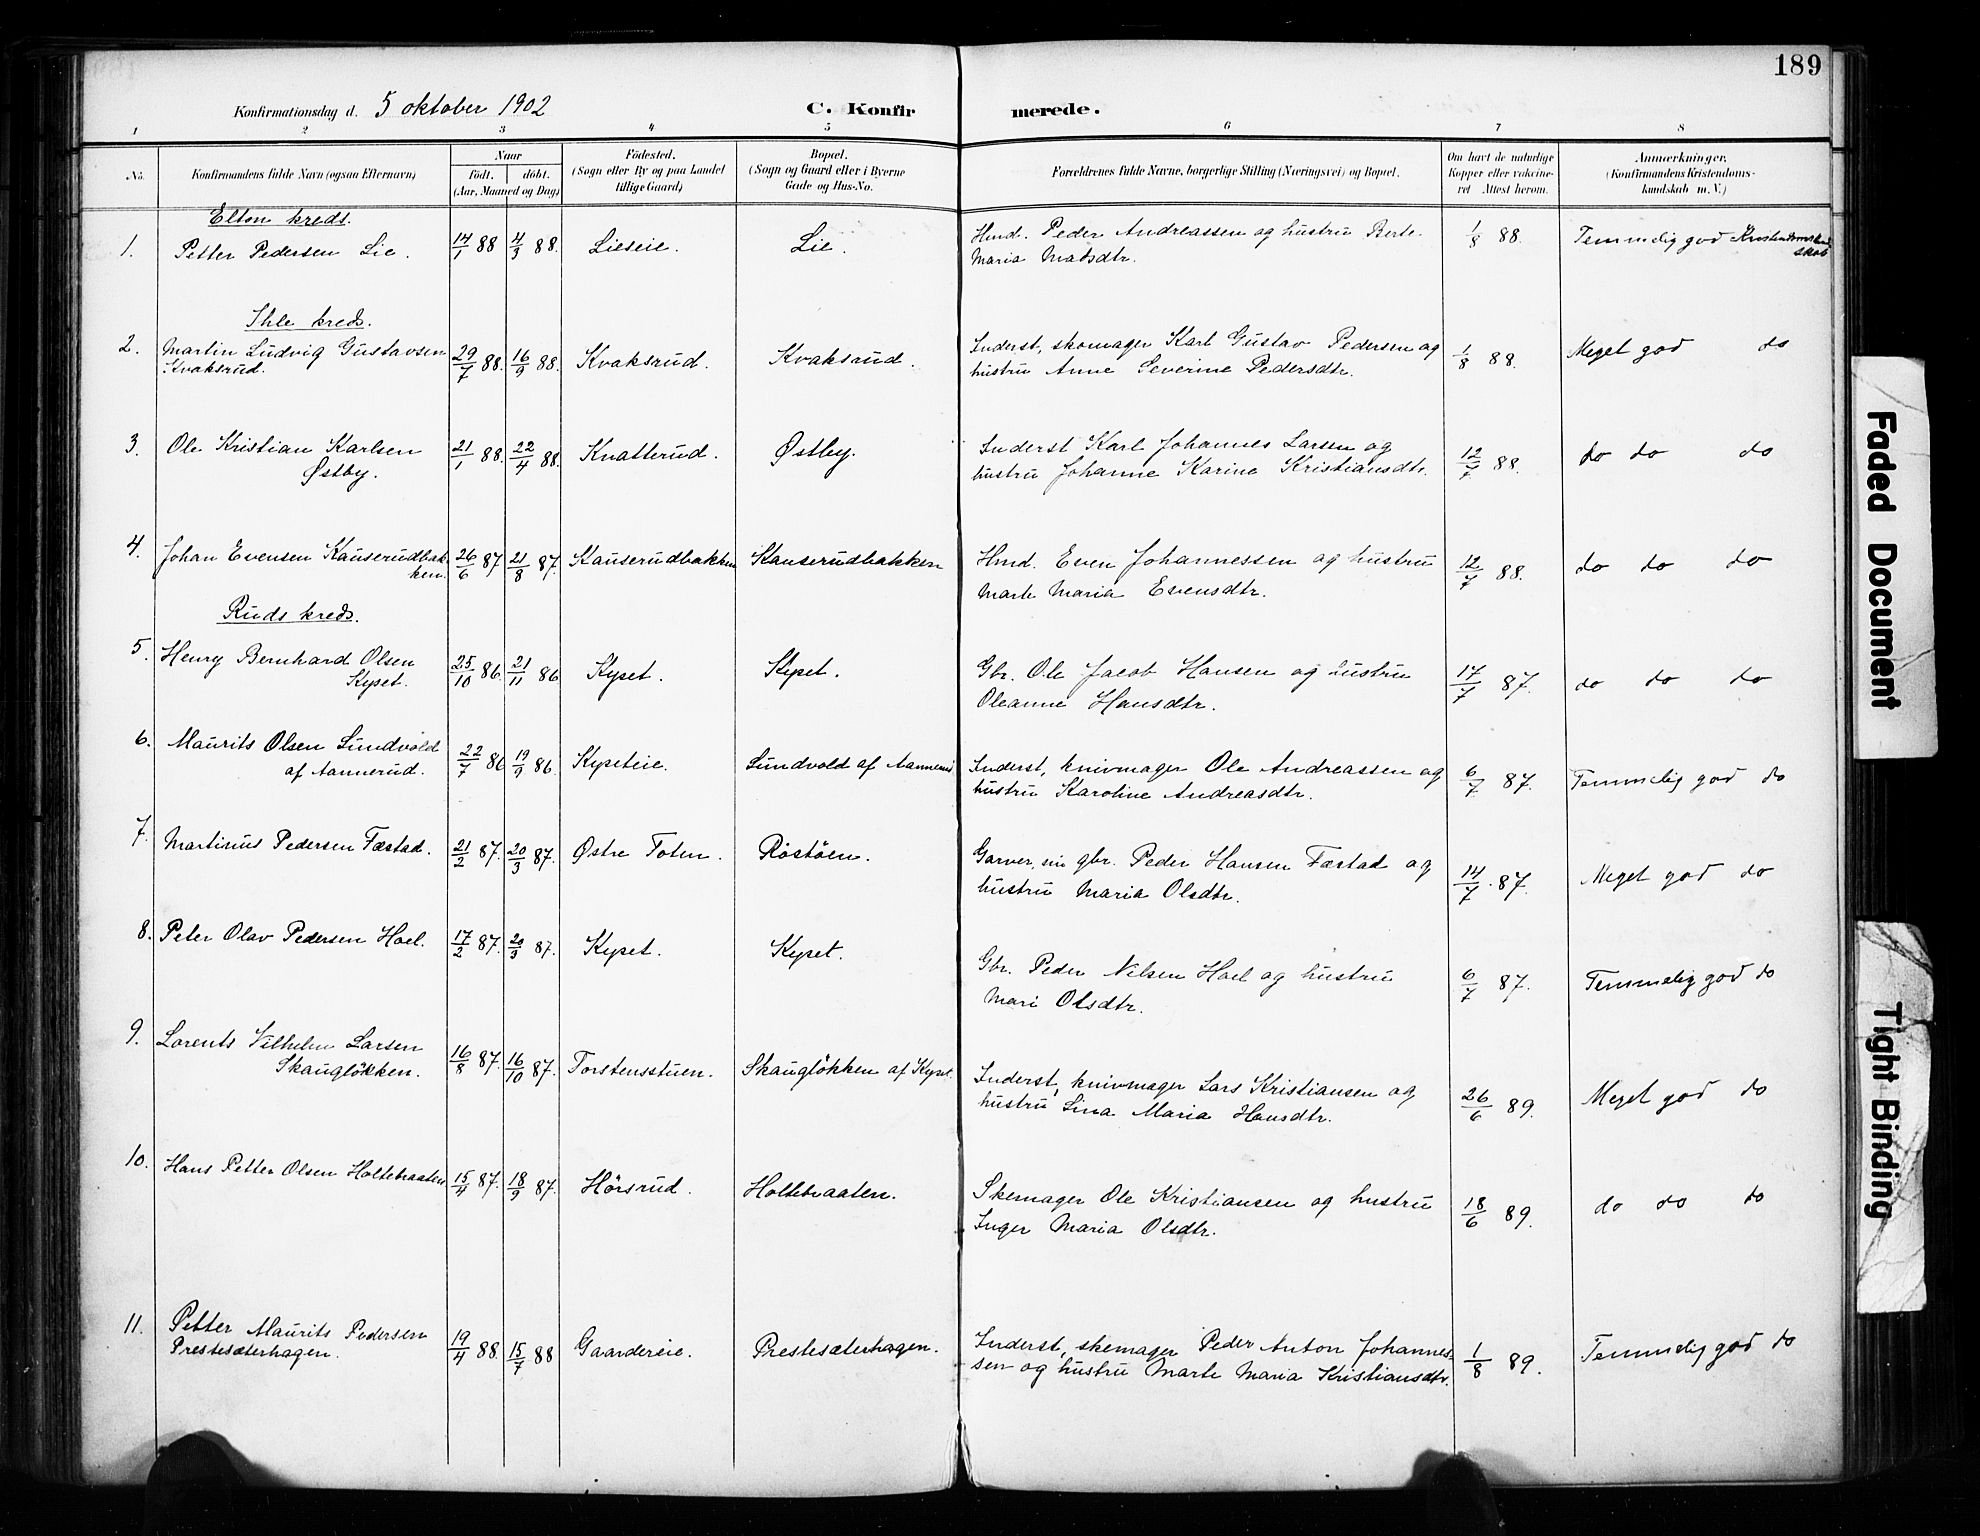 189
Konfirmationsdag d. 5 oktober 1902 C. Konfirmerede.
1 2 3 4 5 6 7 8
No. Konfirmandens fulde Navn (ogsaa Efternavn) Naar født. døbt. (Aar, Maaned og Dag) Fødested. (Sogn eller By og paa Landet tillige Gaard) Bopæl. (Sogn og Gaard eller i Byerne Gade og Hus-No. Forældrenes fulde Navne, borgerlige Stilling (Næringsvei) og Bopæl. Om havt de naturlige Kopper eller vaccineret Attest herom. Anmærkninger. (Konfirmandens Kristendomskundskab m. V.)
Elton kreds.
1. Petter Pedersen Lie. 14/1 88 4/3 88. Lieseie. Lie. Hmd. Peder Andreassen og hustru Berte Maria Madsdtr. 1/8 88. Temmelig god
Ihle kreds.
2. Martin Ludvig Gustavsen Kvaksrud. 29/7 88. 16/9 88. Kvaksrud. Kvaksrud. Inderst, skomager Karl Gustav Pedersen og hustru Anne Severine Pedersdtr. 1/8 88. Meget god do
3. Ole Kristian Karlsen Østby. 21/1 88. 22/4 88. Knatterud. Østby. Inderst Karl Johannes Larsen og hustru Johanne Karine Kristiansdtr. 12/7 88. do do do
4. Johan Evensen Kauserudbakken. 26/6 87 21/8 87. Kauserudbakken Kauserudbakken Hmd. Even Johannessen og hustru Marte Maria Evensdtr. 12/7 88. do do do
Ruds kreds.
5. Henry Bernhard Olsen Kyset. 25/10 86. 21/11 86 Kyset. Kyset. Gbr. Ole Jacob Hansen og hustru Oleanne Hansdtr. 17/7 87. do do do
6. Maurits Olsen Sundvold af Aannerud. 22/7 86 19/9 86. Kyseteie. Sundvold af Aannerud Inderst, knivmager Ole Andreassen og hustru Karoline Andreasdtr. 6/7 87. Temmelig god do
7. Martinus Pedersen Færstad. 21/2 87. 20/3 87. Østre Toten. Röstöen. Garver, gbr. Peder Hansen Færstad og hustru Maria Olsdtr. 14/7 87. Meget god do
8. Peter Olav Pedersen Hoel. 17/2 87. 20/3 87. Kyset. Kyset. Gbr. Peder Nilsen Hoel og hustru Mari Olsdtr. 6/7 87. Temmelig god do
9. Lorents Vilhelm Larsen Skauglökken. 16/8 87. 16/10 87. Torstensstuen. Skauglökken af Kyset. Inderst, knivmager Lars Kristiansen og hustru Lina Maria Hansdtr. 26/6 89. Meget god do
10. Hans Petter Olsen Holtebraaten 15/4 87. 18/9 87. Hörsrud. Holtebraaten. Skemager Ole Kristiansen og hustru Inger Maria Olsdtr. 18/6 89. do do do
11. Petter Maurits Pedersen Prestesæterhagen. 19/4 88. 15/7 88 Gaardereie. Prestesæterhagen. Inderst, skemager Peder Anton Johannessen og hustru Marte Maria Kristiansdtr. 1/8 89. Temmelig god do
Faded Document
Tight Binding